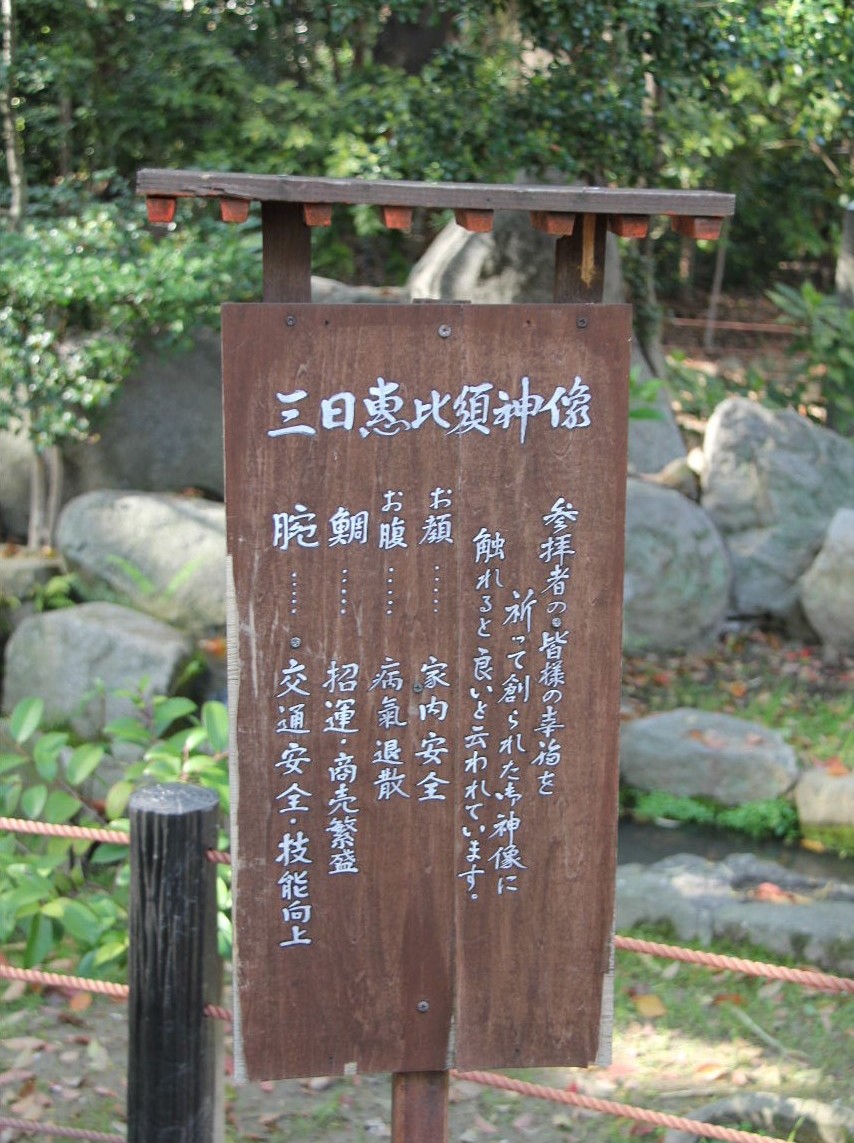 三日恵比須神像
参拝者の皆様の幸福を
祈って創られた御神像に
触れると良いと云われています。
お顔……家内安全
お腹……病氣退散
鯛……招運・商売繁盛
腕……交通安全・技能向上